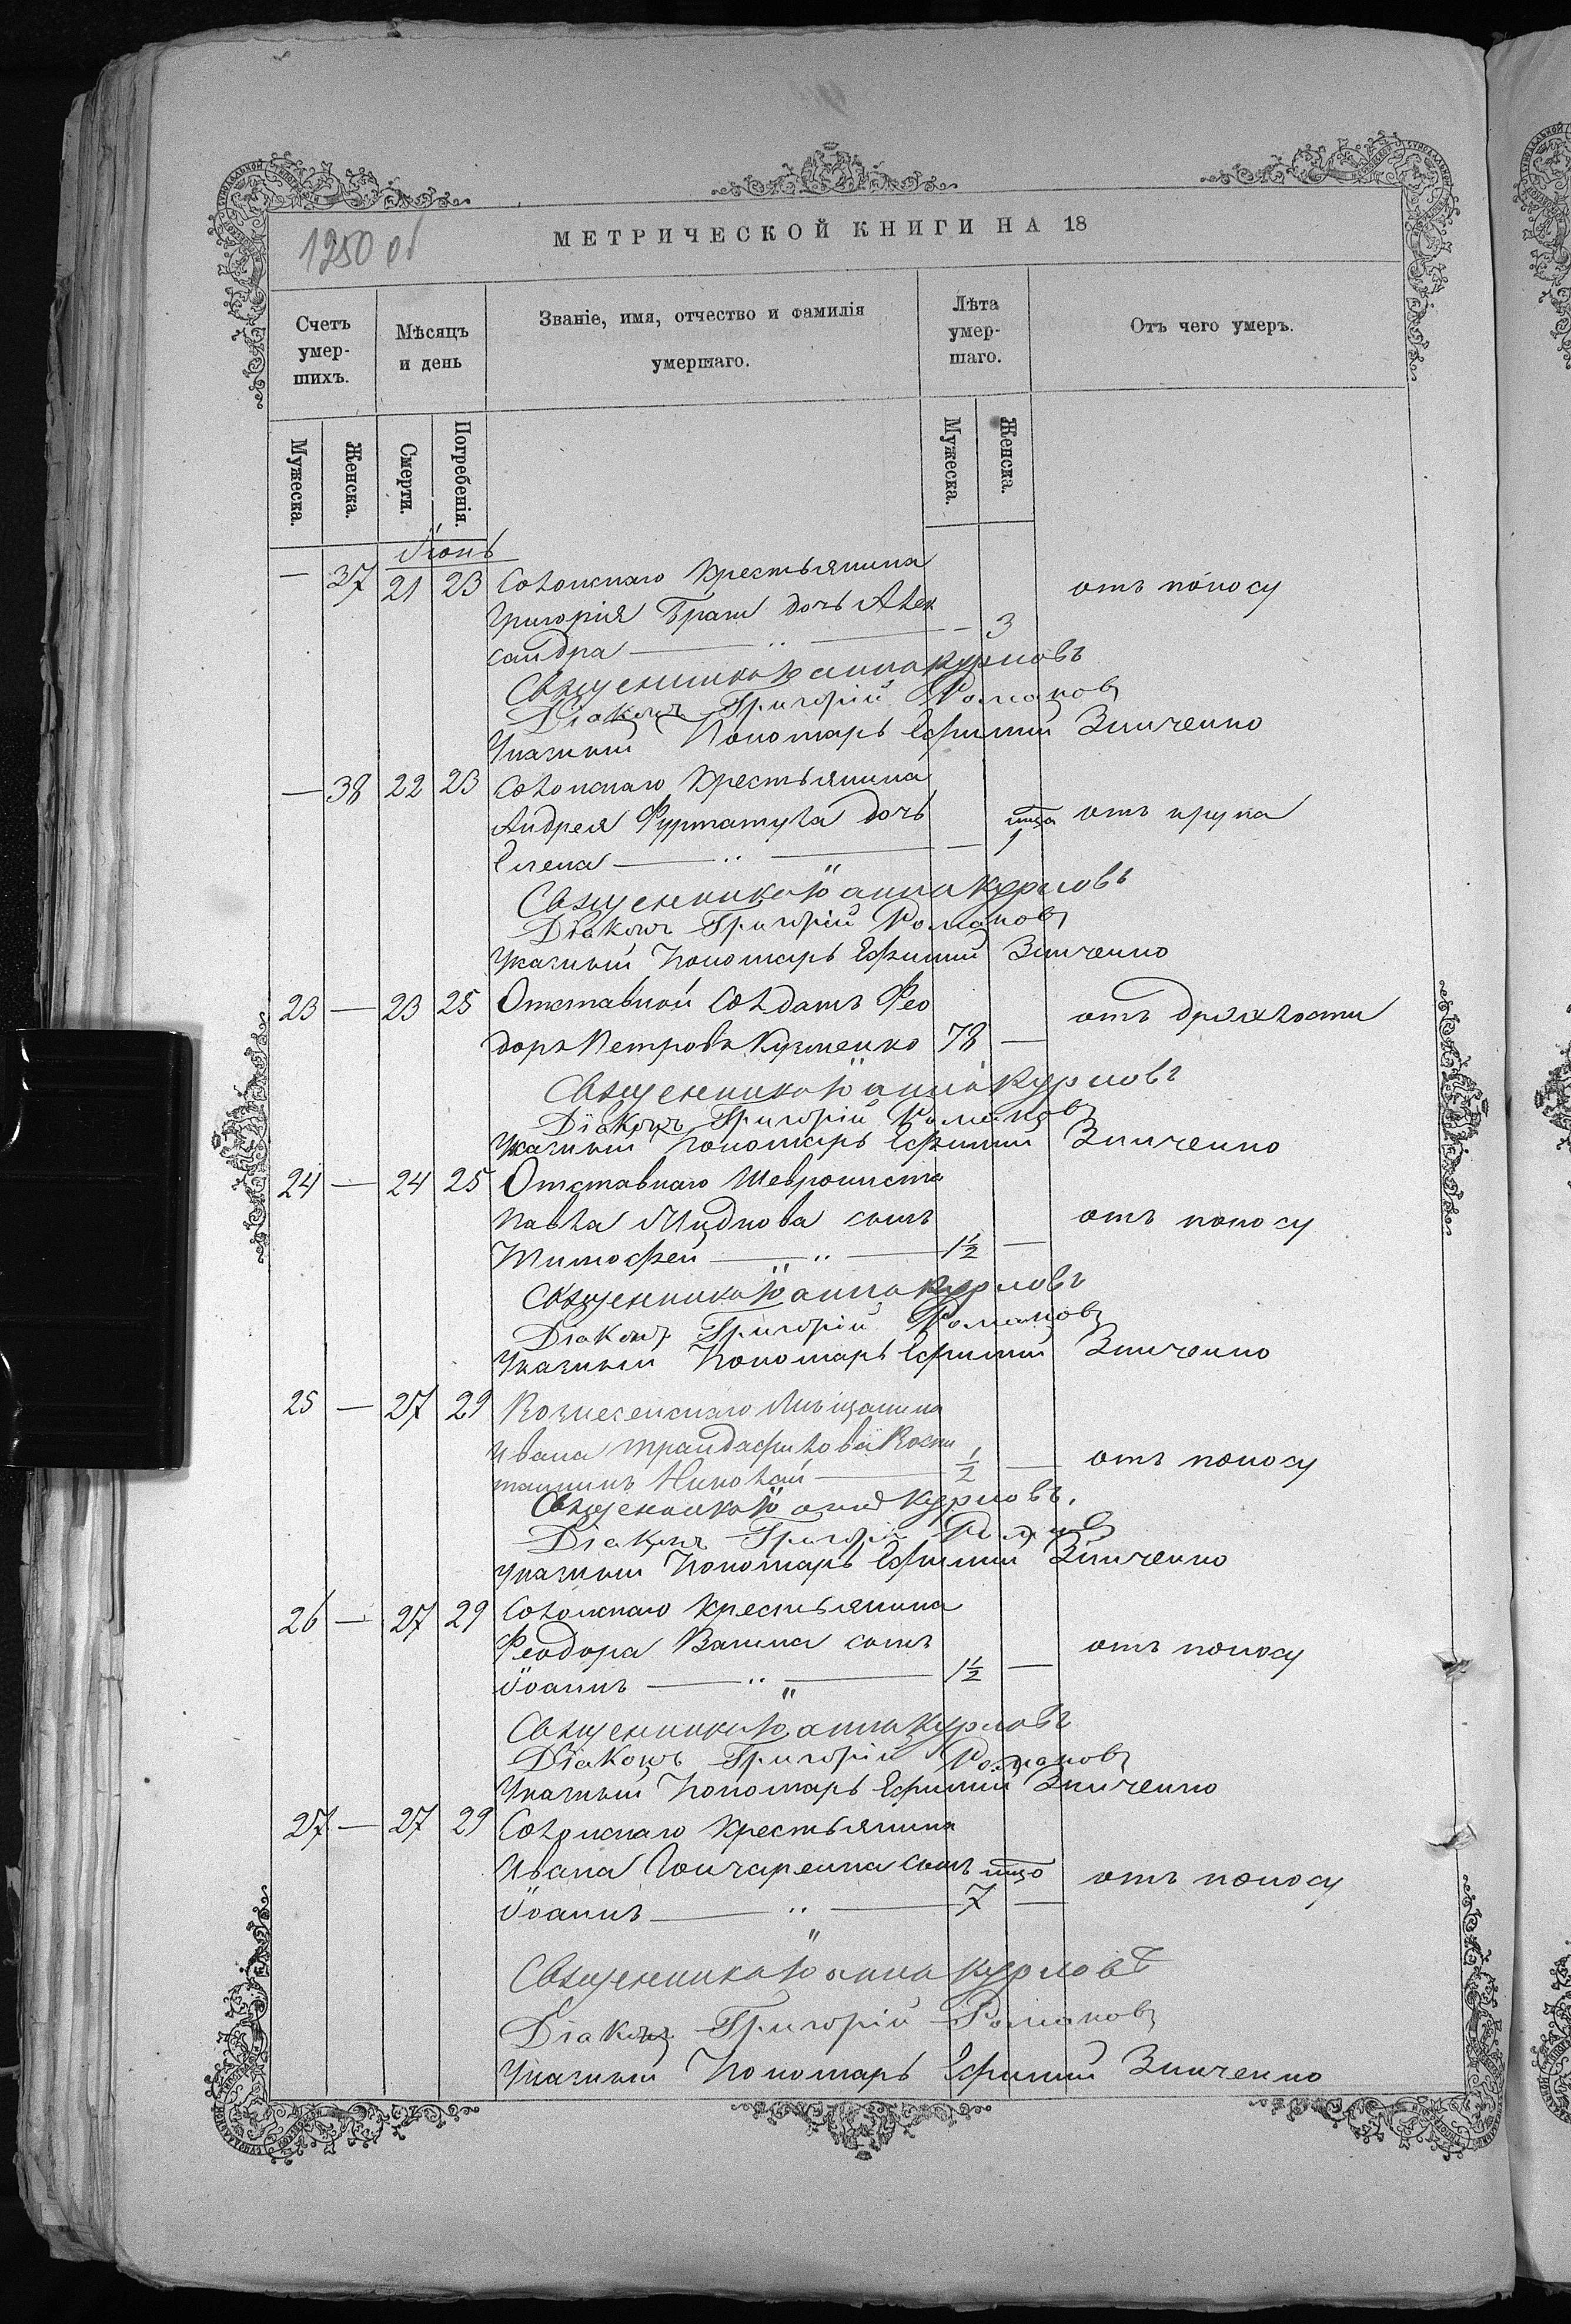 1250 об
МЕТРИЧЕСКОЙ КНИГИ НА 18
Счетъ умер-шихъ.
Мѣсяцъ и день
Званіе, имя, отчество и фамилія умершаго.
Лѣта умер-шаго.
Отъ чего умеръ.
Мужеска. Женска. Смерти. Погребенія. Мужеска. Женска.
Іюнь
— 37 21 23 Солонскаго Крестьянина отъ поносу
Григорія Браги дочь Алек
сандра — 3
Священникъ Іоаннъ Курловъ
Діаконъ Григорій Романовъ
Указный Пономарь Ефимий Зинченко
— 38 22 23 Солонскаго Крестьянина
Андрея дочь мца отъ крупа
Елена — 1
Священникъ Іоаннъ Курловъ
Діаконъ Григорій Романовъ
Указный Пономарь Ефимий Зинченко
23 — 23 25 Отставной Солдатъ Фео отъ дряхлости
доръ Петровъ Кузменко 78 —
Священникъ Іоаннъ Курловъ
Діаконъ Григорій Романовъ
Указный Пономарь Ефимий Зинченко
24 — 24 25 Отставнаго Шеврониста
Павла сынъ отъ поносу
Тимофей 1½ —
Священникъ Іоаннъ Курловъ
Діаконъ Григорій Романовъ
Указный Пономарь Ефимий Зинченко
25 — 27 29 Вознесенскаго Мѣщанина
Ивана
Николай ½ — отъ поносу
Священникъ Іоаннъ Курловъ.
Діаконъ Григорій Романовъ
Указный Пономарь Ефимий Зинченко
26 — 27 29 Солонскаго Крестьянина
Феодора сынъ отъ поносу
Іоаннъ 1½ —
Священникъ Іоаннъ Курловъ
Діаконъ Григорій Романовъ
Указный Пономарь Ефимий Зинченко
27 — 27 29 Солонскаго Крестьянина
Ивана Гончаренка сынъ отъ поносу
Іоаннъ 7 —
Священникъ Іоаннъ Курловъ
Діаконъ Григорій Романовъ
Указный Пономарь Ефимий Зинченко